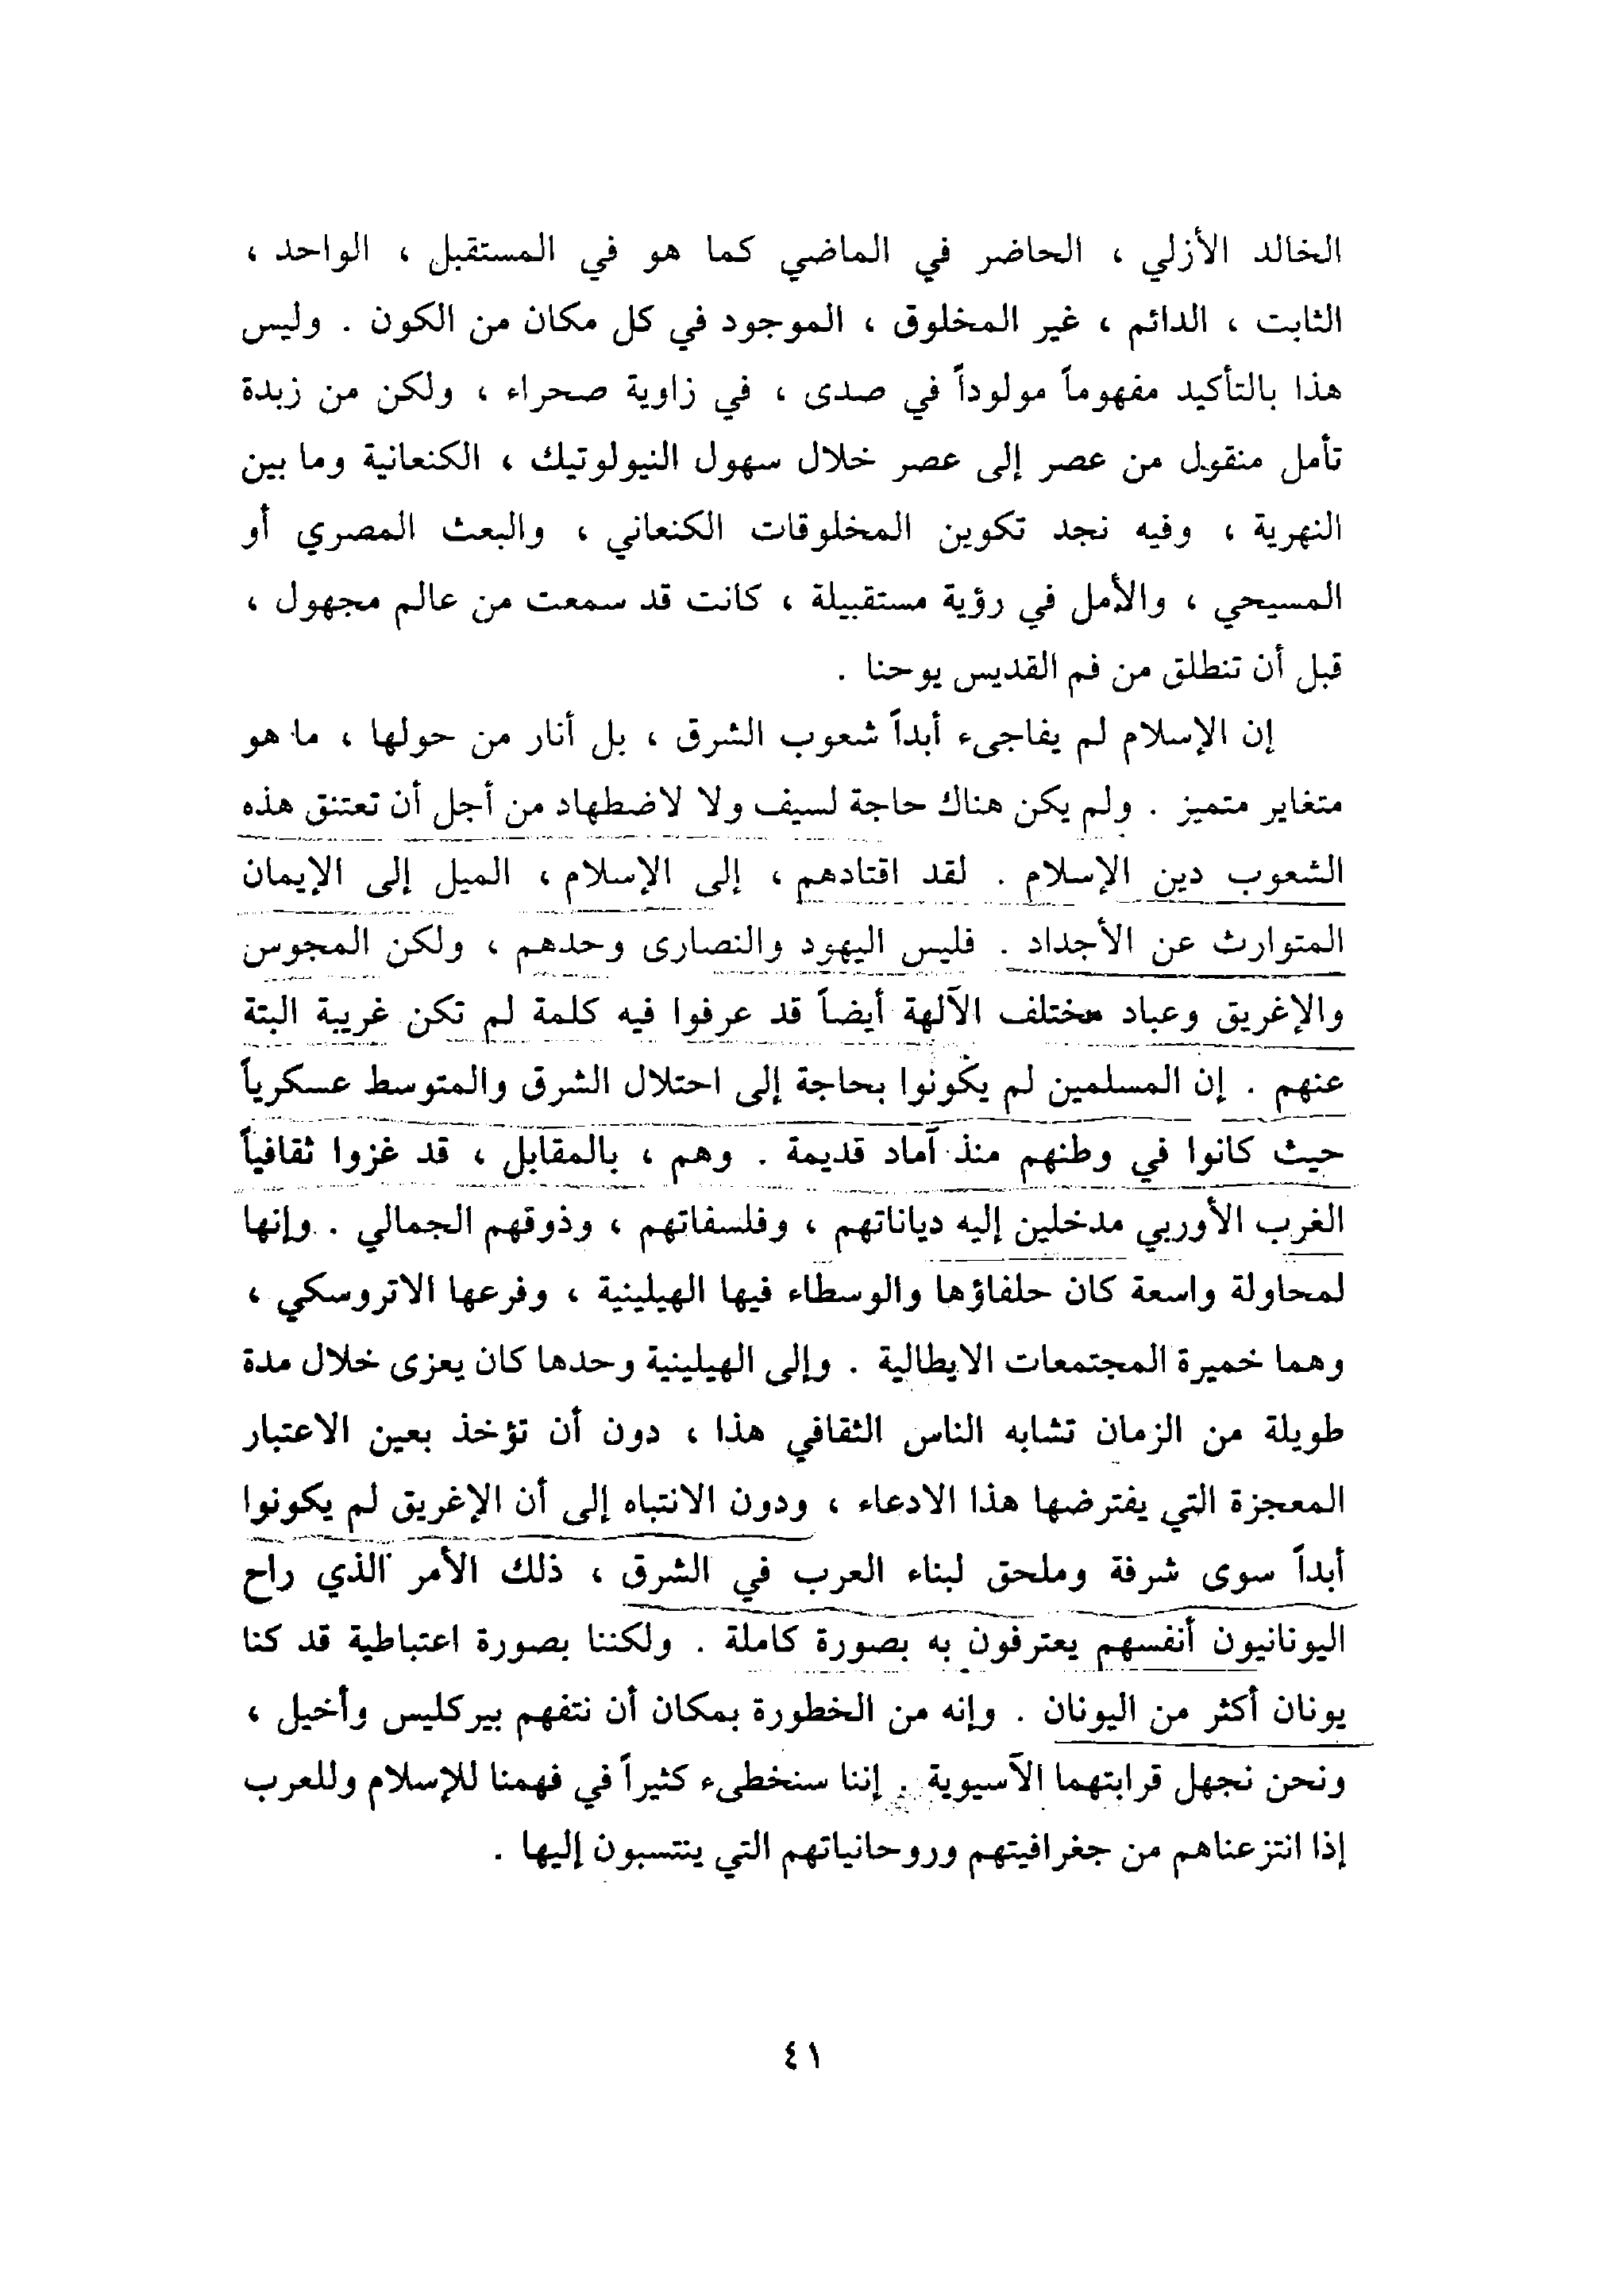 الخالد الأزلي ، الحاضر في الماضي كما هو في المستقبل ، الواحد ،
الثابت ، الدائم ، غير المخلوق ، الموجود في كل مكان من الكون . وليس
هذا بالتأكيد مفهوماً مولوداً في صدى ، في زاوية صحراء ، ولكن من زبدة
تأمل منقول من عصر إلى عصر خلال سهول النيولوتيك ، الكنعانية وما بين
النهرية ، وفيه نجد تكوين المخلوقات الكنعاني ، والبعث المصري أو
المسيحي ، والأمل في رؤية مستقبيلة ، كانت قد سمعت من عالم مجهول ،
قبل أن تنطلق من فم القديس يوحنا .
إن الإسلام لم يفاجىء أبداً شعوب الشرق ، بل أنار من حولها ، ما هو
متغاير متميز . ولم يكن هناك حاجة لسيف ولا لاضطهاد من أجل أن تعتنق هذه
الشعوب دين الإسلام . لقد اقتادهم ، إلى الإسلام ، الميل إلى الإيمان
المتوارث عن الأجداد . فليس اليهود والنصارى وحدهم ، ولكن المجوس
والإغريق وعباد مختلف الآلهة أيضاً قد عرفوا فيه كلمة لم تكن غريبة البتة
عنهم . إن المسلمين لم يكونوا بحاجة إلى احتلال الشرق والمتوسط عسكرياً
حيث كانوا في وطنهم منذ آماد قديمة . وهم ، بالمقابل ، قد غزوا ثقافياً
الغرب الأوربي مدخلين إليه دياناتهم ، وفلسفاتهم ، وذوقهم الجمالي . وإنها
لمحاولة واسعة كان حلفاؤها والوسطاء فيها الهيلينية ، وفرعها الاتروسكي ،
وهما خميرة المجتمعات الايطالية . وإلى الهيلينية وحدها كان يعزى خلال مدة
طويلة من الزمان تشابه الناس الثقافي هذا ، دون أن تؤخذ بعين الاعتبار
المعجزة التي يفترضها هذا الادعاء ، ودون الانتباه إلى أن الإغريق لم يكونوا
أبداً سوى شرفة وملحق لبناء العرب في الشرق ، ذلك الأمر الذي راح
اليونانيون أنفسهم يعترفون به بصورة كاملة . ولكننا بصورة اعتباطية قد كنا
يونان أكثر من اليونان . وإنه من الخطورة بمكان أن نتفهم بيركليس وأخيل ،
ونحن نجهل قرابتهما الآسيوية . إننا سنخطىء كثيراً في فهمنا للإسلام وللعرب
إذا انتزعناهم من جغرافيتهم وروحانياتهم التي ينتسبون إليها .
٤١